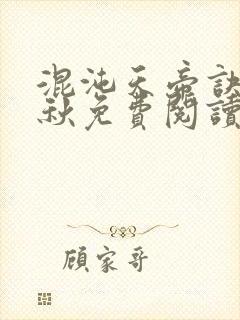 混沌天帝訣
秋免費閱讀
顧家哥